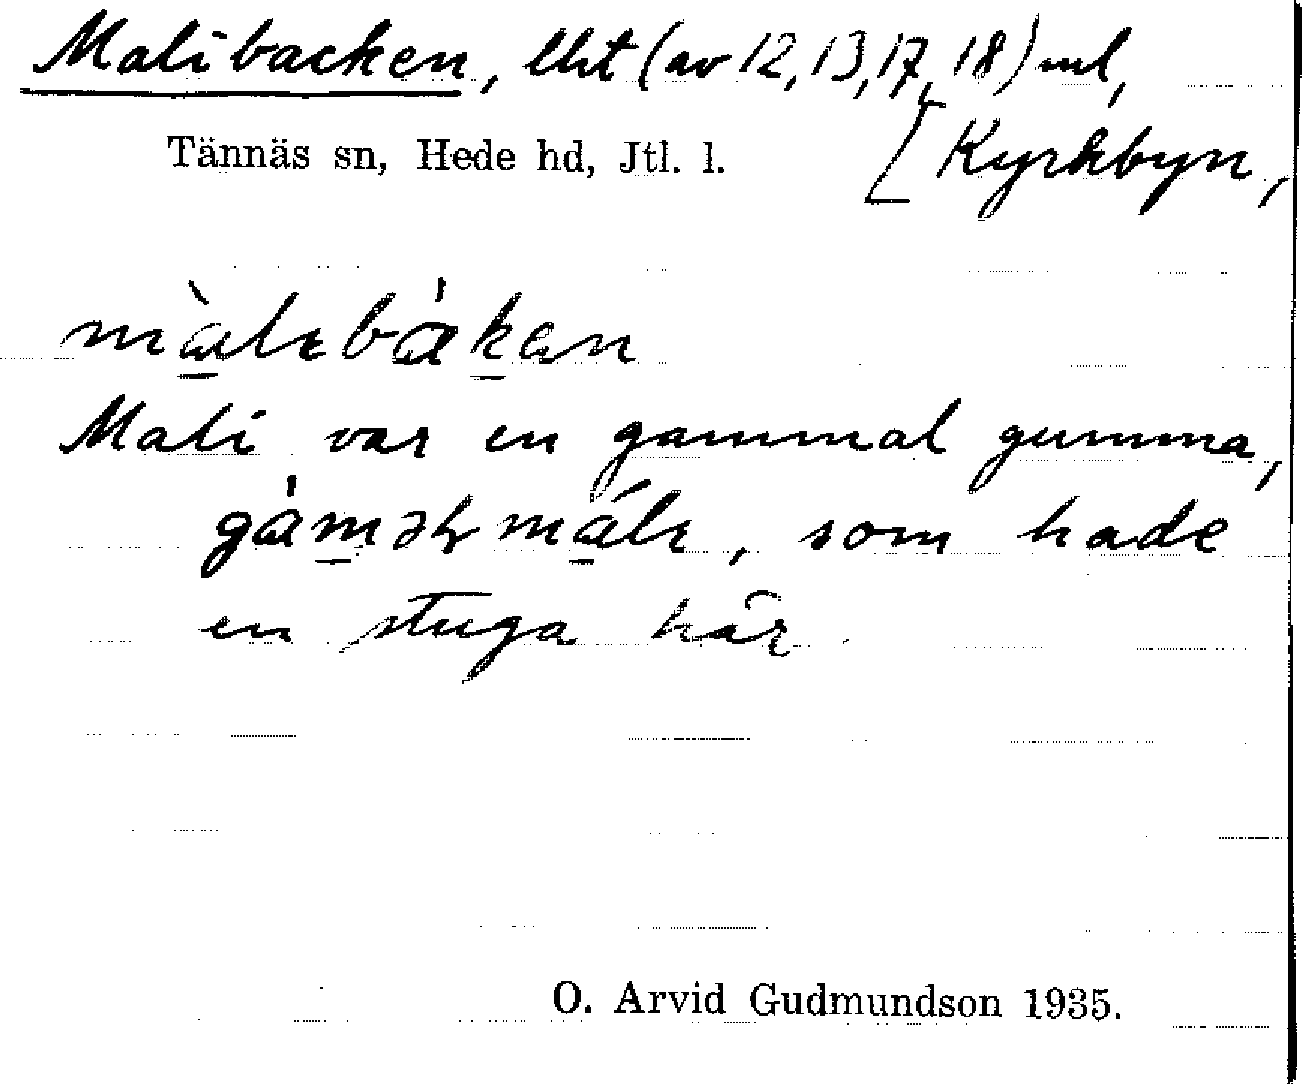 Malibacken, lht (av 12, 13, 17, 18) ml,
[Kyrkbyn,
Tännäs sn, Hede hd, Jtl. l.
Mali var en gammal gumma,
som hade
en stuga här
O. Arvid Gudmundson 1935.